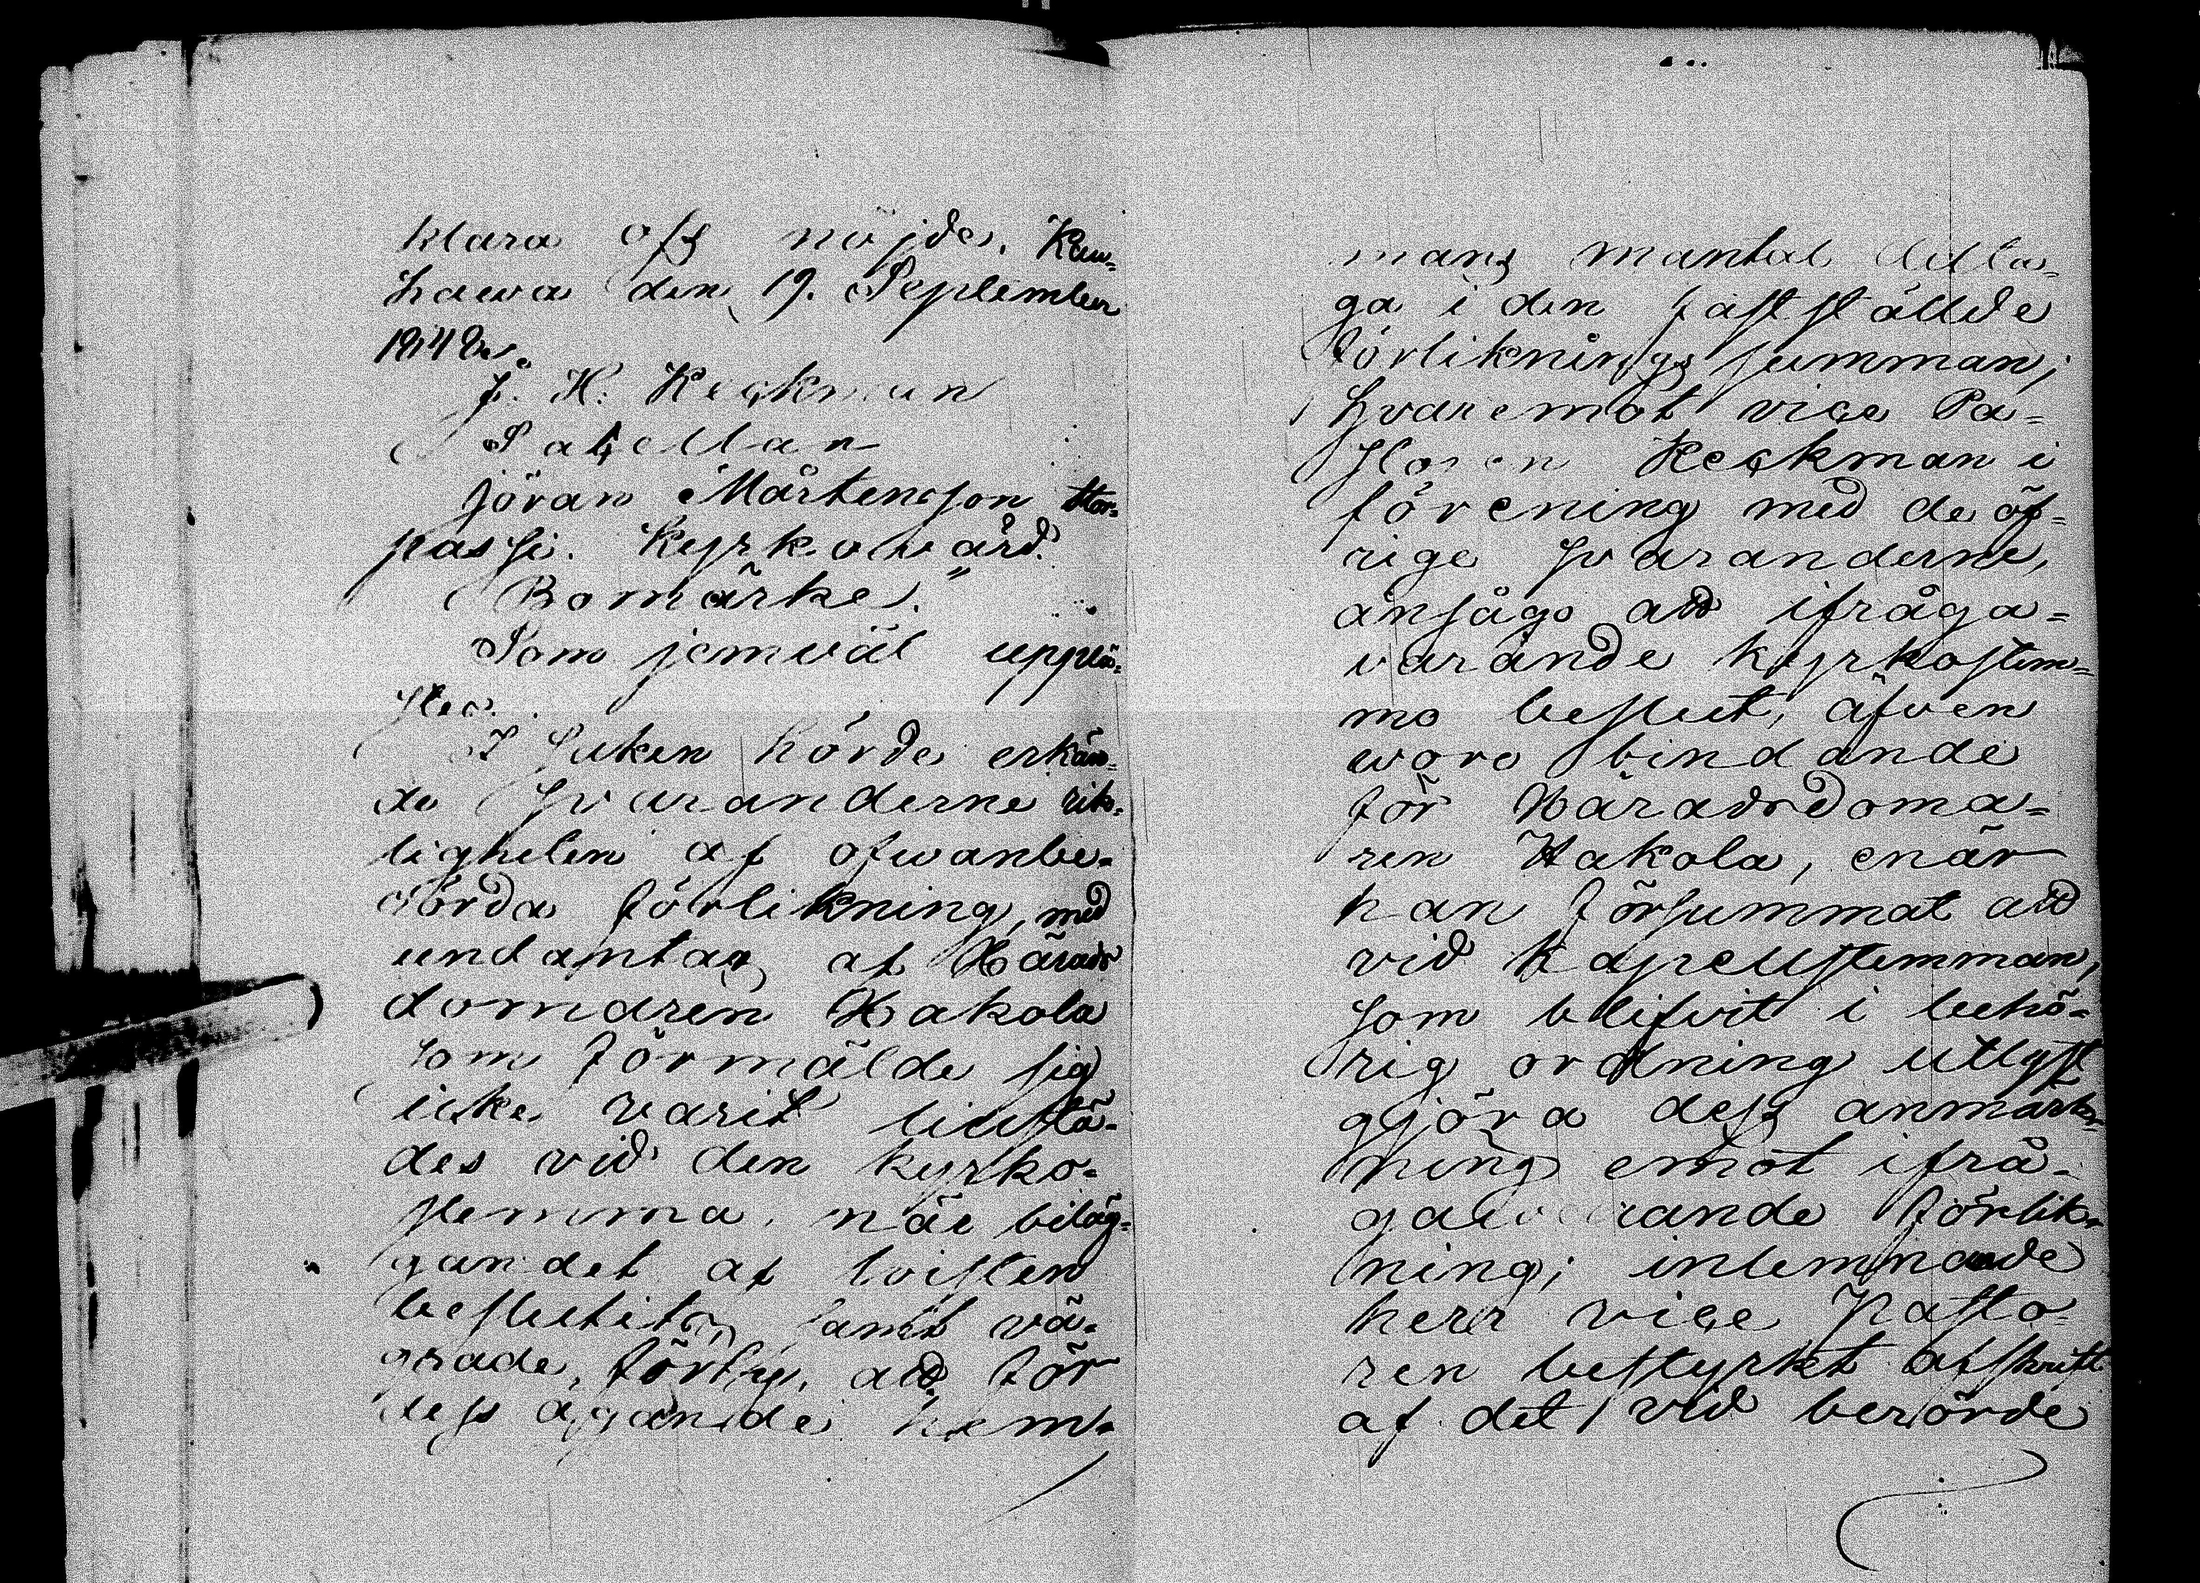 klara oss nöjde. Kau-
hawa den 19. September
1848.
J. H. Heckman
Sacellan
Jöran Mårtensson Stor-
passi. Kyrkowärd.
Bomärke."
Som jemväl upplä-
stes.
I saken hörde erkän-
de Svaranderne rik-
tigheten af ofwanbe-
rörda förlikning, med
undantag af Härads
domaren Hakola
som förmälde sig
icke varit tillstä-
des vid den kyrko-
stemma, när biläg-
gandet af tvisten
beslutits, samt vä-
grade, förty, att för
dess ägande hem-
mans mantal deltа-
ga i den fastställde
förliknings summan;
hvaremot vice Pa-
storen Heckman i
förening med de öf-
rige Svaranderne,
ansågo att ifråga-
varande kyrkostem-
mo beslut, äfven
woro bindande
för Häradsdoma-
ren Hakola, enär
han försummat att
vid Kapellstemman,
som blifvit i behö-
rig ordning utlyst
gjöra dess anmärk-
ning emot ifrå-
gawarande förlik-
ning; inlemnande
herr vice Pasto-
ren bestyrkt afskrift
af det vid berörde